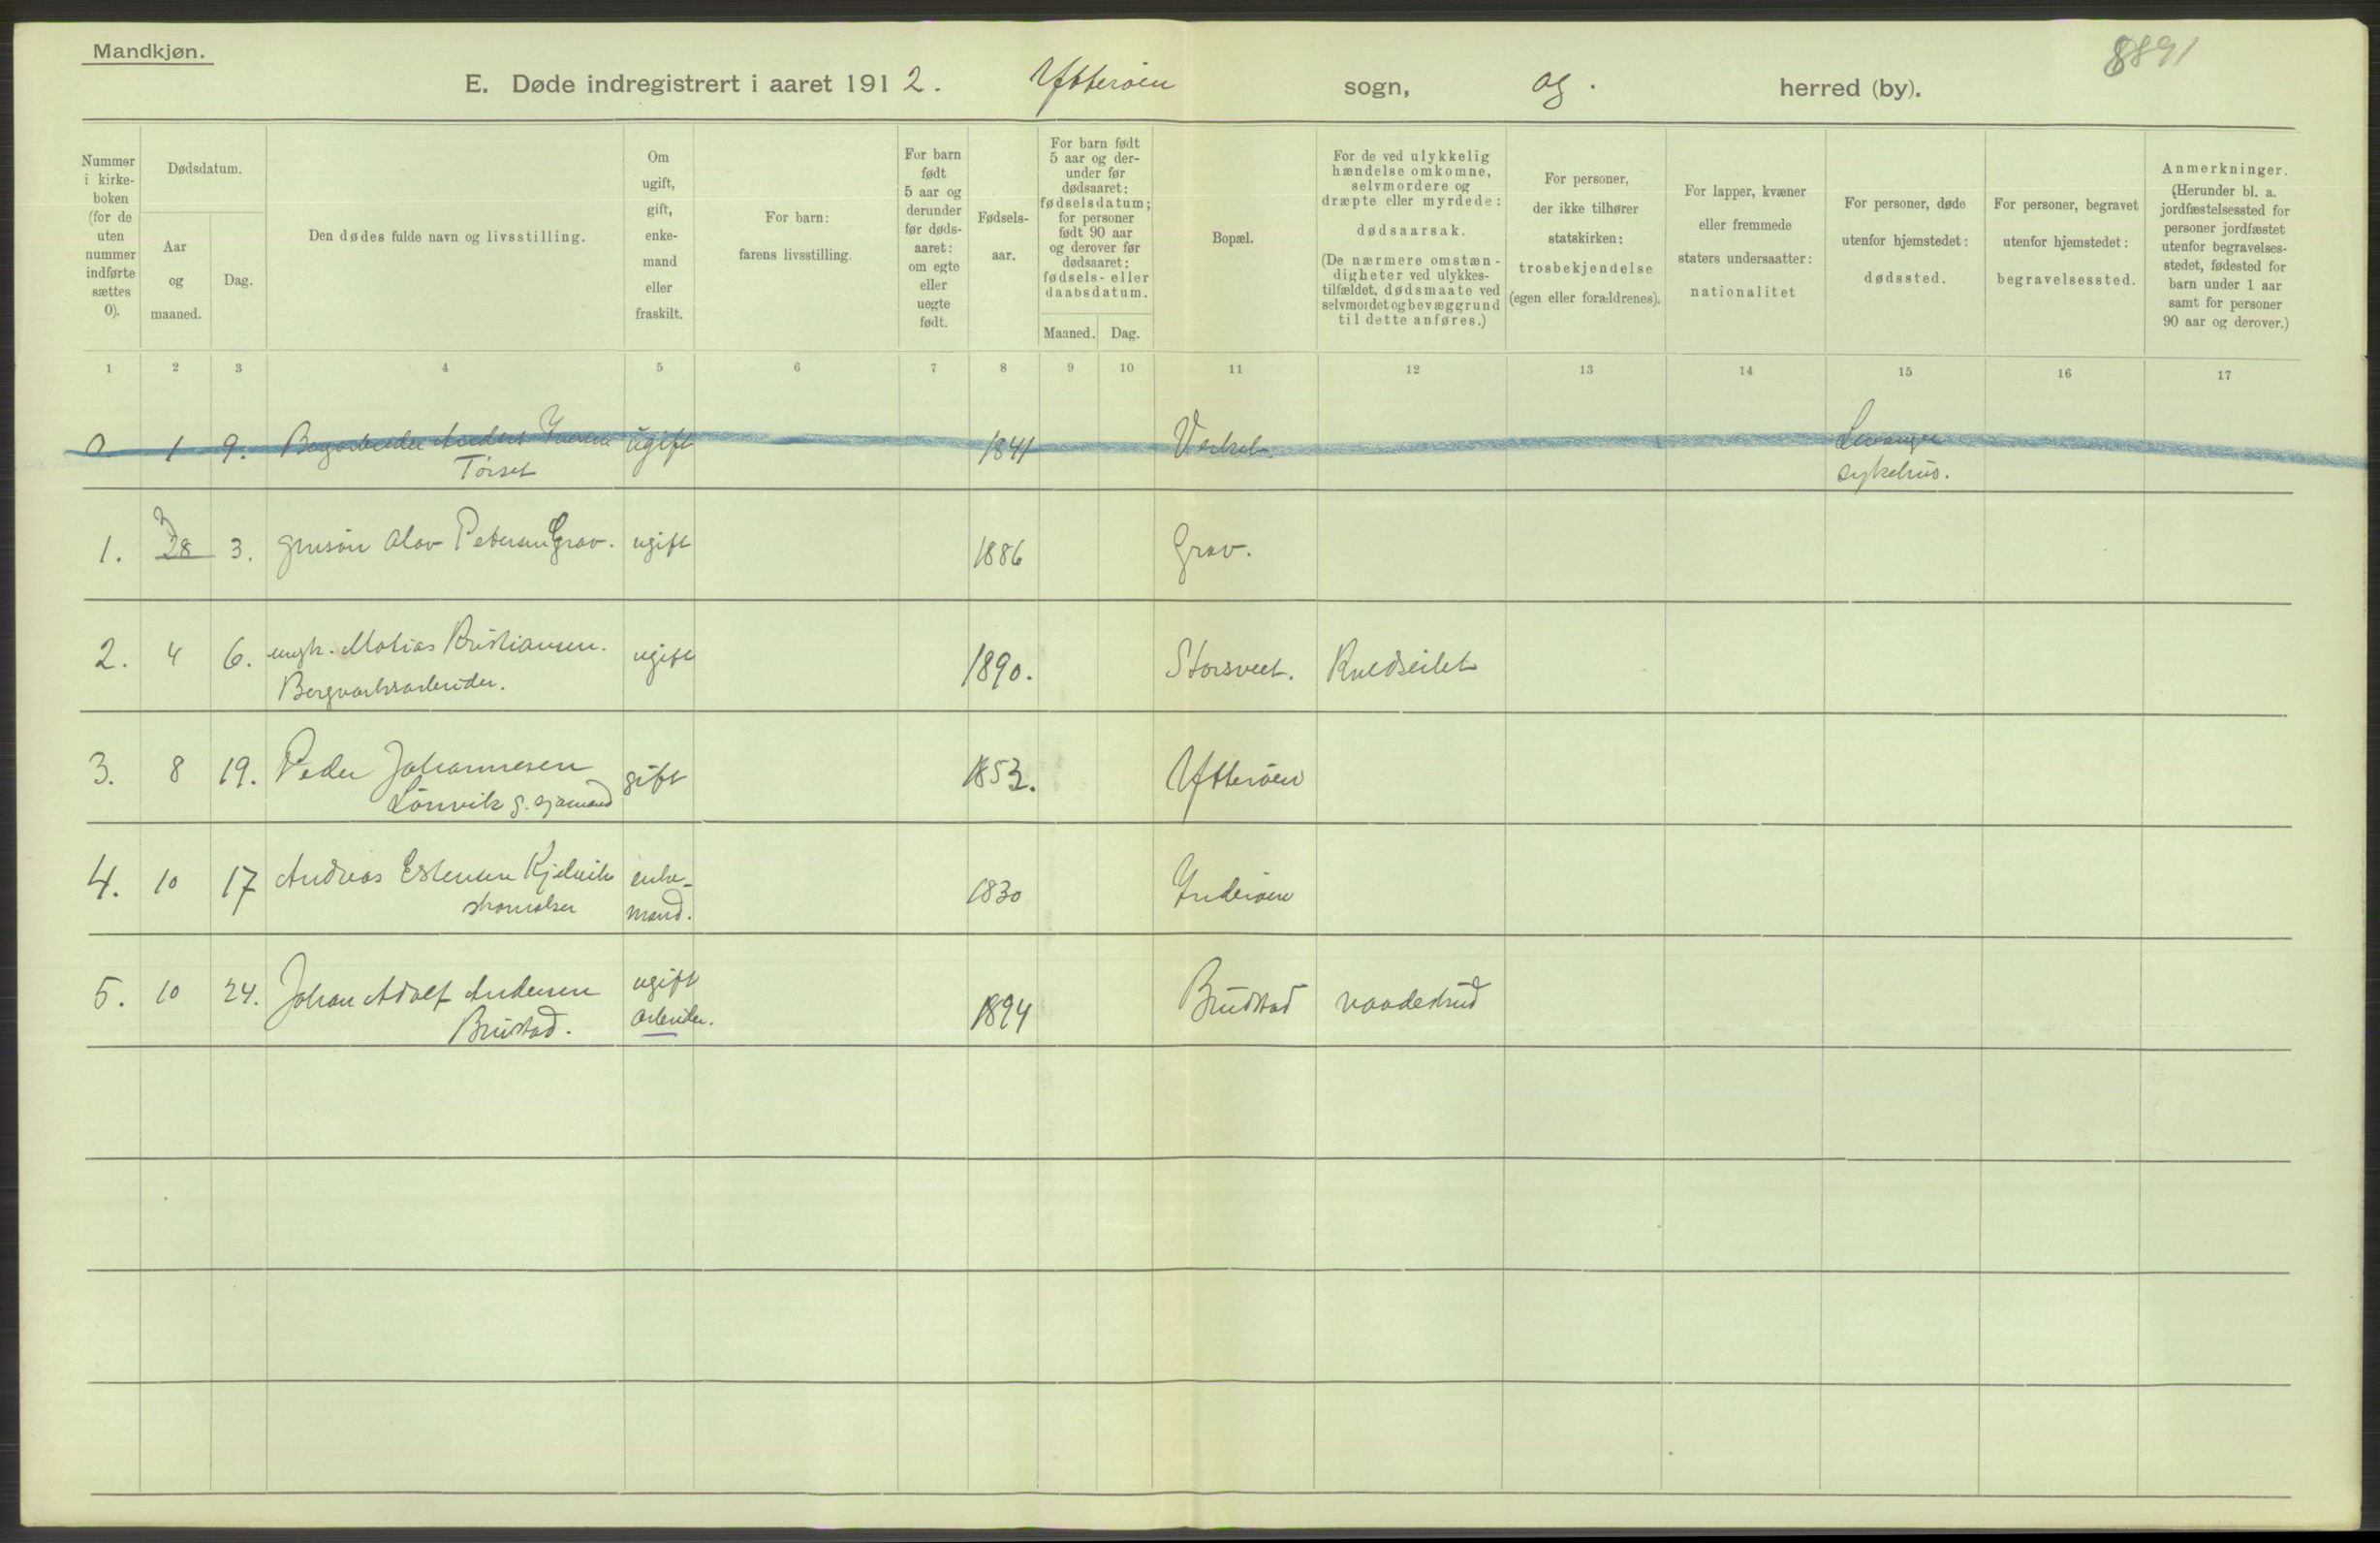 Mandkjøn.
8891
E. Døde indregistrert i aaret 1912. Ytterøen sogn, og. herred (by).
Nummer i kirke-boken (for de uten nummer indførte sættes 0).
Dødsdatum.
Aar og maaned.
Dag.
Den dødes fulde navn og livsstilling.
Om ugift, gift, enke-mand eller fraskilt.
For barn: farens livsstilling.
For barn født 5 aar og derunder før døds-aaret: om egte eller uegte født.
Fødsels-aar.
For barn født 5 aar og der-under før dødsaaret: fødselsdatum; for personer født 90 aar og derover før dødsaaret: fødsels- eller daabsdatum.
Maaned. Dag.
Bopæl.
For de ved ulykkelig hændelse omkomne, selvmordere og dræpte eller myrdede: dødsaarsak. (De nærmere omstæn-digheter ved ulykkes-tilfældet, dødsmaate ved selvmordet og bevæggrund til dette anføres.)
For personer, der ikke tilhører statskirken: trosbekjendelse (egen eller forældrenes).
For lapper, kvæner eller fremmede staters undersaatter: nationalitet
For personer, døde utenfor hjemstedet: dødssted.
For personer, begravet utenfor hjemstedet: begravelsessted.
Anmerkninger. (Herunder bl. a. jordfæstelsessted for personer jordfæstet utenfor begravelses-stedet, fødested for barn under 1 aar samt for personer 90 aar og derover.)
1 2 3 4 5 6 7 8 9 10 11 12 13 14 15 16 17
0 1 9. Anders ugift 1841 Verket. Levanger
Tørset sykehus.
1. 3 28 3. Olav Petersen Grav. ugift 1886 Grav.
2. 4 6. ungk. Matias Kristiansen. ugift 1890. Storsveet. Kuldseilet
Bergverksarbeider.
3. 8 19. Peder Johannesen gift 1853. Ytterøen
Lönvik g. sjømand
4. 10 17 Andreas Estensen Kjelvik enke- 1830 Inderøen
skomaker mand.
5. 10 24. Johan Adolf Andersen ugift 1894 Brudstad vaadeskud
Brustad. arbeider.